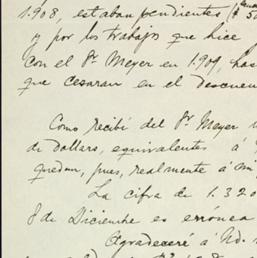 1.908, estaban pendientes (
y por los trabajos que hice
con el Sr. Meyer en 1.909, has
que cesaran en el descuen
Como recibí del Sr. Meyer
de dollars, equivalentes á
quedan, pues, realmente á mi
La cifra de 1.320
8 de Diciembre es errónea
Agradeceré á Ud.